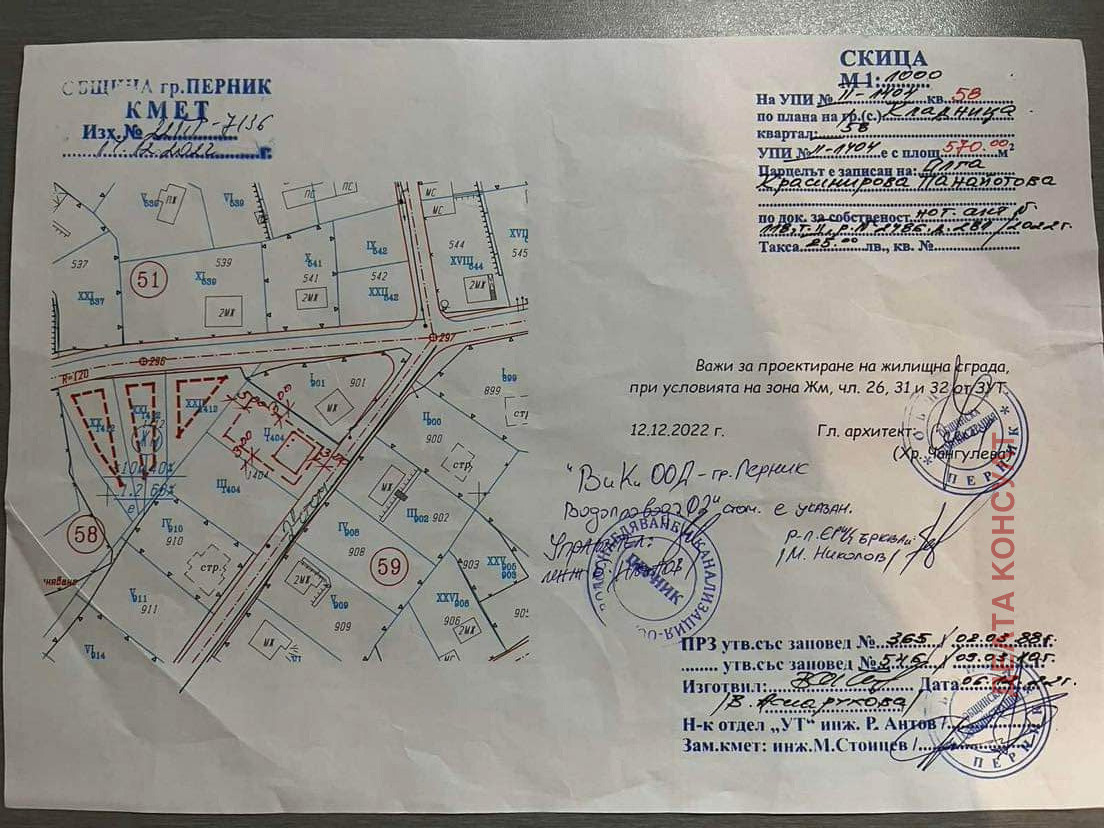 ОБЩИНА гр.ПЕРНИК
КМЕТ
Изх.№ 7136
12.2022 г.
СКИЦА
М 1: 1000
На УПИ № II-1404 кв. 58
по плана на гр.(с.) Кладница
квартал: 58
УПИ № II-1404 е с площ 570.00 м2
Парцелът е записан на: Олга
Красимирова Панайотова
по док. за собственост нот. акт №
118, т. II, р.№ 2486, д. 281 /2022г.
Такса 25.00 лв., кв. №
Важи за проектиране на жилищна сграда,
при условията на зона Жм, чл. 26, 31 и 32 от ЗУТ.
12.12.2022 г.
Гл. архитект:
(Хр. Чонгулева)
"ВиК" ООД - гр. Перник
Водопровод
е указан.
Управител:
инж. Иванов
М. Николов
ВОДОСНАБДЯВАНЕ И КАНАЛИЗАЦИЯ-ООД
ПЕРНИК
ОБЩИНСКА
АДМИНИСТРАЦИЯ
ПЕРНИК
ПРЗ утв.със заповед № 365 / 02.03.88г.
утв.със заповед № 546 / 09.03.19г.
Изготвил: Дата 06.12.22г.
Н-к отдел „УТ" инж. Р. Антов /
Зам.кмет: инж.М.Стоицев /
ОБЩИНСКА
ПЕРНИК
ДЕЛТА КОНСУЛТ
V 539
ПЖ
VI 539
ПС
МС
МС
IX 542
544
XVIII 544
XVII
545
537
XXI 537
51
539
XI 539
X 541
541
542
XXII 542
2МЖ
2МЖ
2МЖ
296
297
R=120
I 901
901
МЖ
I 899
899
стр
XX 1412
XXI 1412
XXII 1412
II 1404
1404
5.00
3.00
III 1404
II 900
900
стр.
58
IV 910
910
стр.
МЖ
III 902
902
IV 908
908
59
V 911
911
VI 914
2МЖ
V 909
909
МЖ
903
XXV 905
903
XXVI 906
906
2МЖ
МС
905